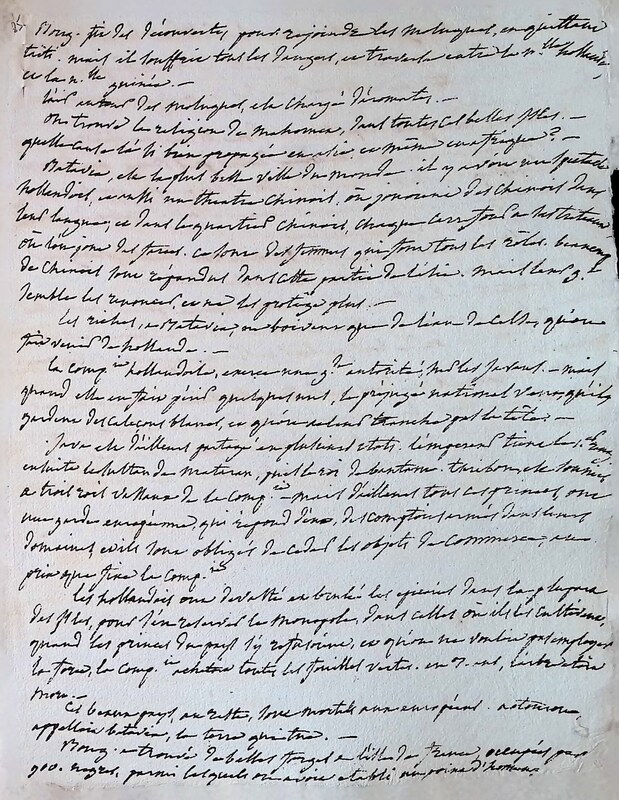 Boug. fte des découvertes, pour rejoindre les moluques, en quittant
titi. mais il souffrit tous les dangers, en traversant entre la n.lle hollande,
et la n.lle guinée. —
l'air autour des moluques, est chargé d'aromates. —
On trouve la religion de mahomet, dans toutes ces belles isles. —
quelle cause l'a si bien propagée en asie et même en afrique? —
Batavia, est la plus belle ville du monde. il y avoit un spectacle
hollandois, et aussi un theatre chinois, où jouoient des chinois dans
leur langue; et dans le quartier chinois, chaque carrefour a ses tréteaux
où l'on joue des farces. ce sont des femmes qui font tous les rôles. beaucoup
de chinois sont répandus dans cette partie de l'asie. mais leur g.t
semble les renoncer, et ne les protege plus. —
Les riches, a Batavia, ne boivent que de l'eau de Selse, qu'on
fait venir de hollande. —
la comp.ie hollandoise, exerce une g.de autorité, sur les javans. — mais
quand elle en fait périr quelques uns, le préjugé national veut qu'ils
gardent des caleçons blancs, et qu'on ne leur tranche pas la tête. —
Java est d'ailleurs partagé en plusieurs états. l'empereur tient le 1.er rang
ensuite le sultan de mataran, puis le roi de bantam. Chéribon, est soumise
a trois rois vassaux de la comp.ie — mais d'ailleurs tous ces princes, ont
une garde européenne, qui répond d'eux, des comptoirs armés dans leurs
domaines, et ils sont obligés de céder les objets de commerce, au
prix que fixe la comp.ie
Les hollandois ont dévasté en brulé les épiciers dans la plupart
des isles, pour s'en reserver le monopole, dans celles où ils les cultivent,
quand les princes du pays s'y refusoient, et qu'on ne vouloit pas employer
la force, la comp.ie achetoit toutes les feuilles vertes. en 3. ans, l'arbre étoit
mort. —
Ces beaux pays, au reste, sont mortels aux européens. autour
appelloit batavia, la terre qui tue. —
Boug. a trouvé de belles forges a l'isle de france, occupées par
900. negres, parmi lesquels on avoit etabli un point d'honneur